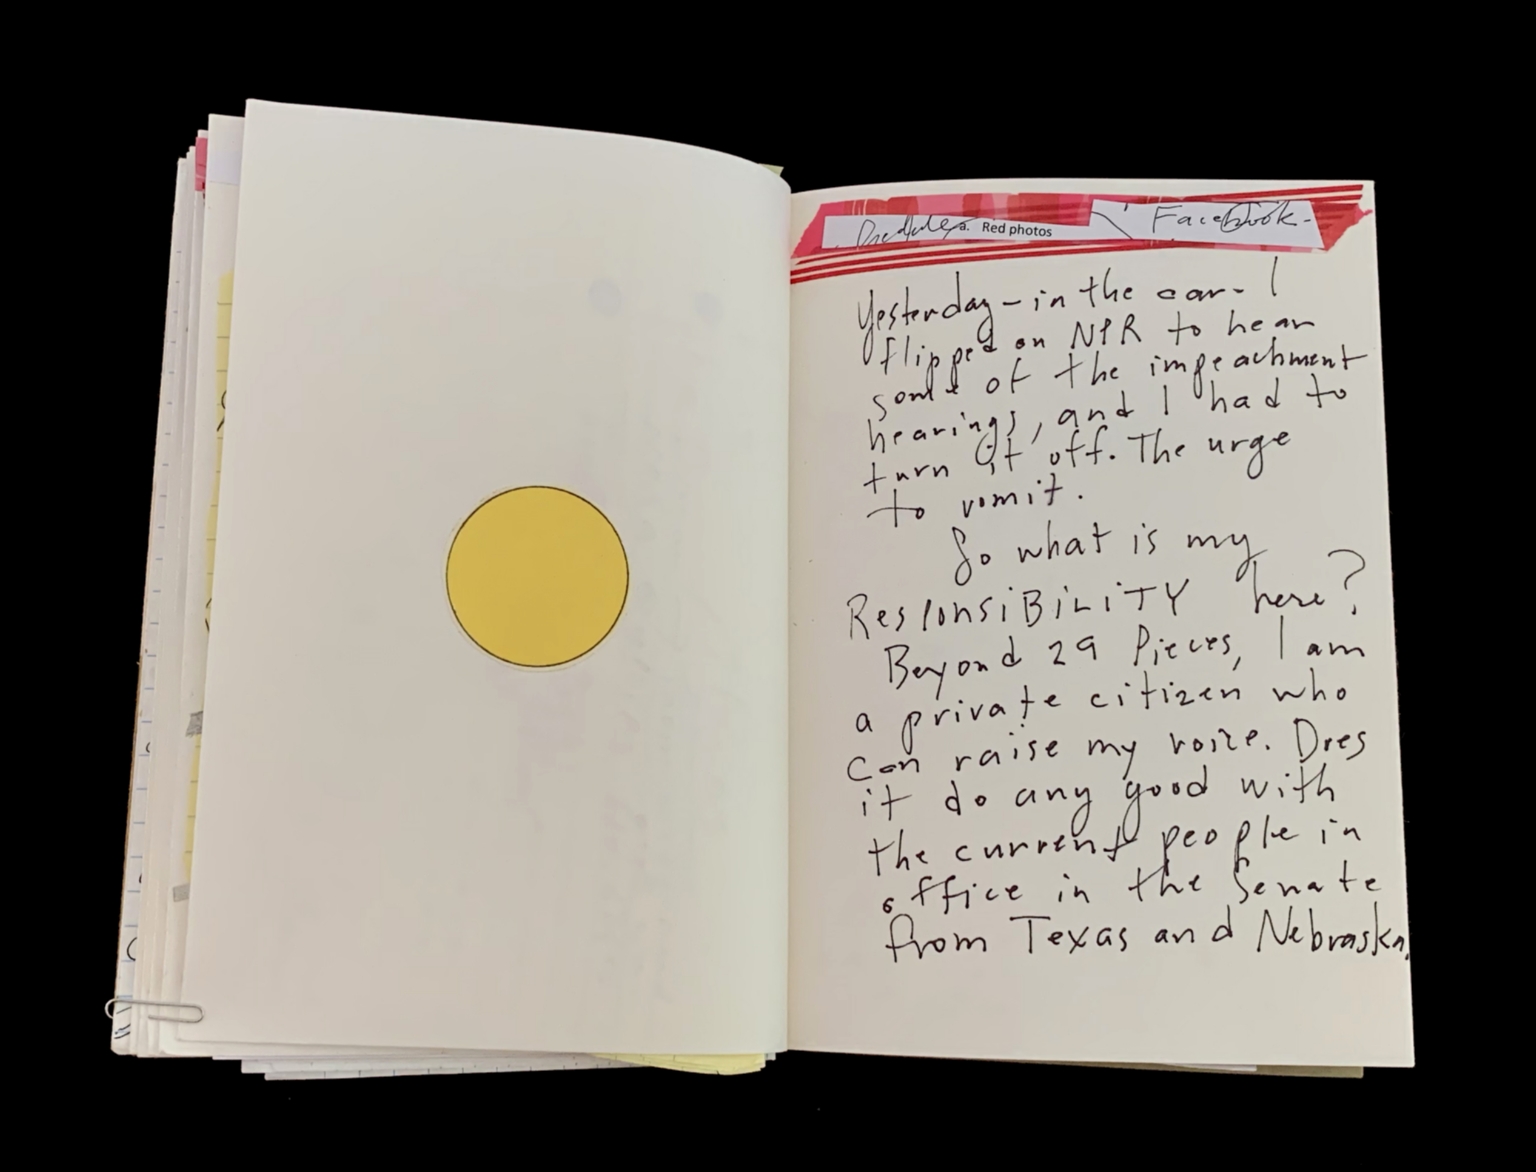 a. Red photos
Facebook-
Yesterday - in the car - I
flipped on NPR to hear
some of the impeachment
hearings, and I had to
turn it off. The urge
to vomit.
So what is my
RESPONSIBILITY here?
Beyond 29 Pieces, I am
a private citizen who
can raise my voice. Does
it do any good with
the current people in
office in the Senate
from Texas and Nebraska.